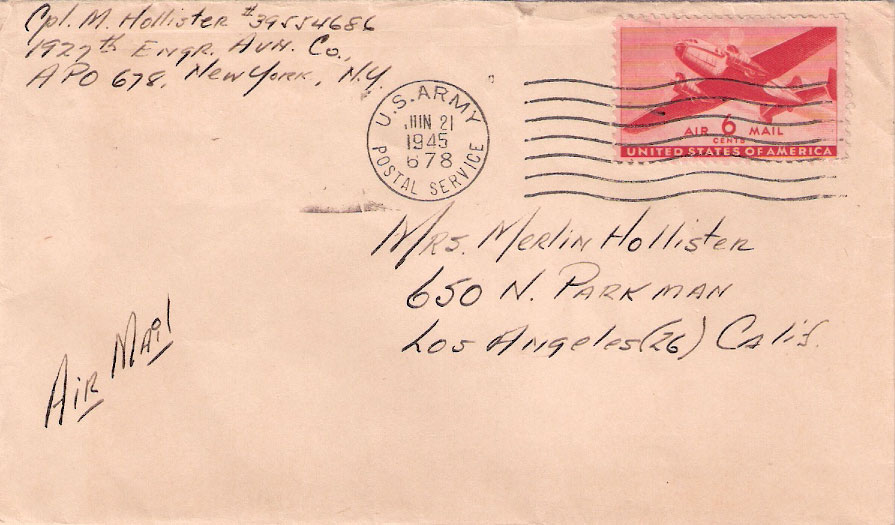 Cpl. M. Hollister #39554686
1927th Engr. Avn. Co.,
APO 678, New York, N.Y.
U.S. ARMY
JUN 21
1945
678
POSTAL SERVICE
AIR 6 MAIL
CENTS
UNITED STATES OF AMERICA
Mrs. Merlin Hollister
650 N. Parkman
Los Angeles (26) Calif.
Air Mail